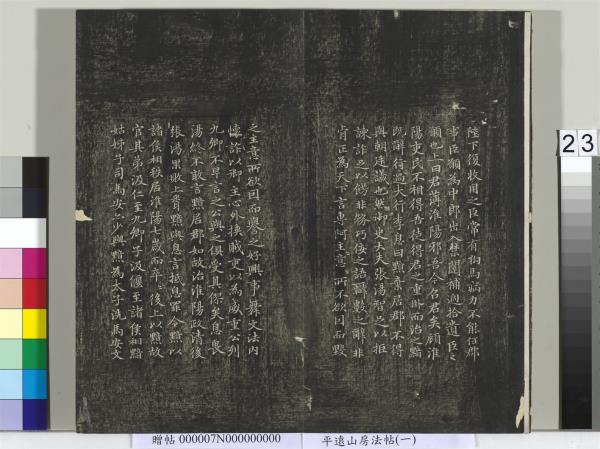 陛下復收用之臣常有狗馬病力不能任郡
事臣願為中郎出入禁闥補過拾遺臣之
願也上曰君薄淮陽邪吾今召君矣顧淮
陽吏民不相得吾徒得君之重臥而治之黯
既辭行過大行李息曰黯棄居郡不得
與朝廷議也然御史大夫張湯智足以拒
諫詐足以飾非務巧佞之語辯數之辭非
肯正為天下言專阿主意〻〻所不欲因而毀
之主意所欲因而譽之好興事舞文法內
懷詐以御主心外挾賊吏以為威重公列
九卿不早言之公與之俱受其僇矣息畏
湯終不敢言黯居郡如故治淮陽政清後
張湯果敗上聞黯與息言抵息罪令黯以
諸侯相秩居淮陽七歲而卒〻後上以黯故
官其弟汲仁至九卿子汲偃至諸侯相黯
姑姊子司馬安亦少與黯為太子洗馬安文
23
贈帖 000007N000000000 平遠山房法帖(一)